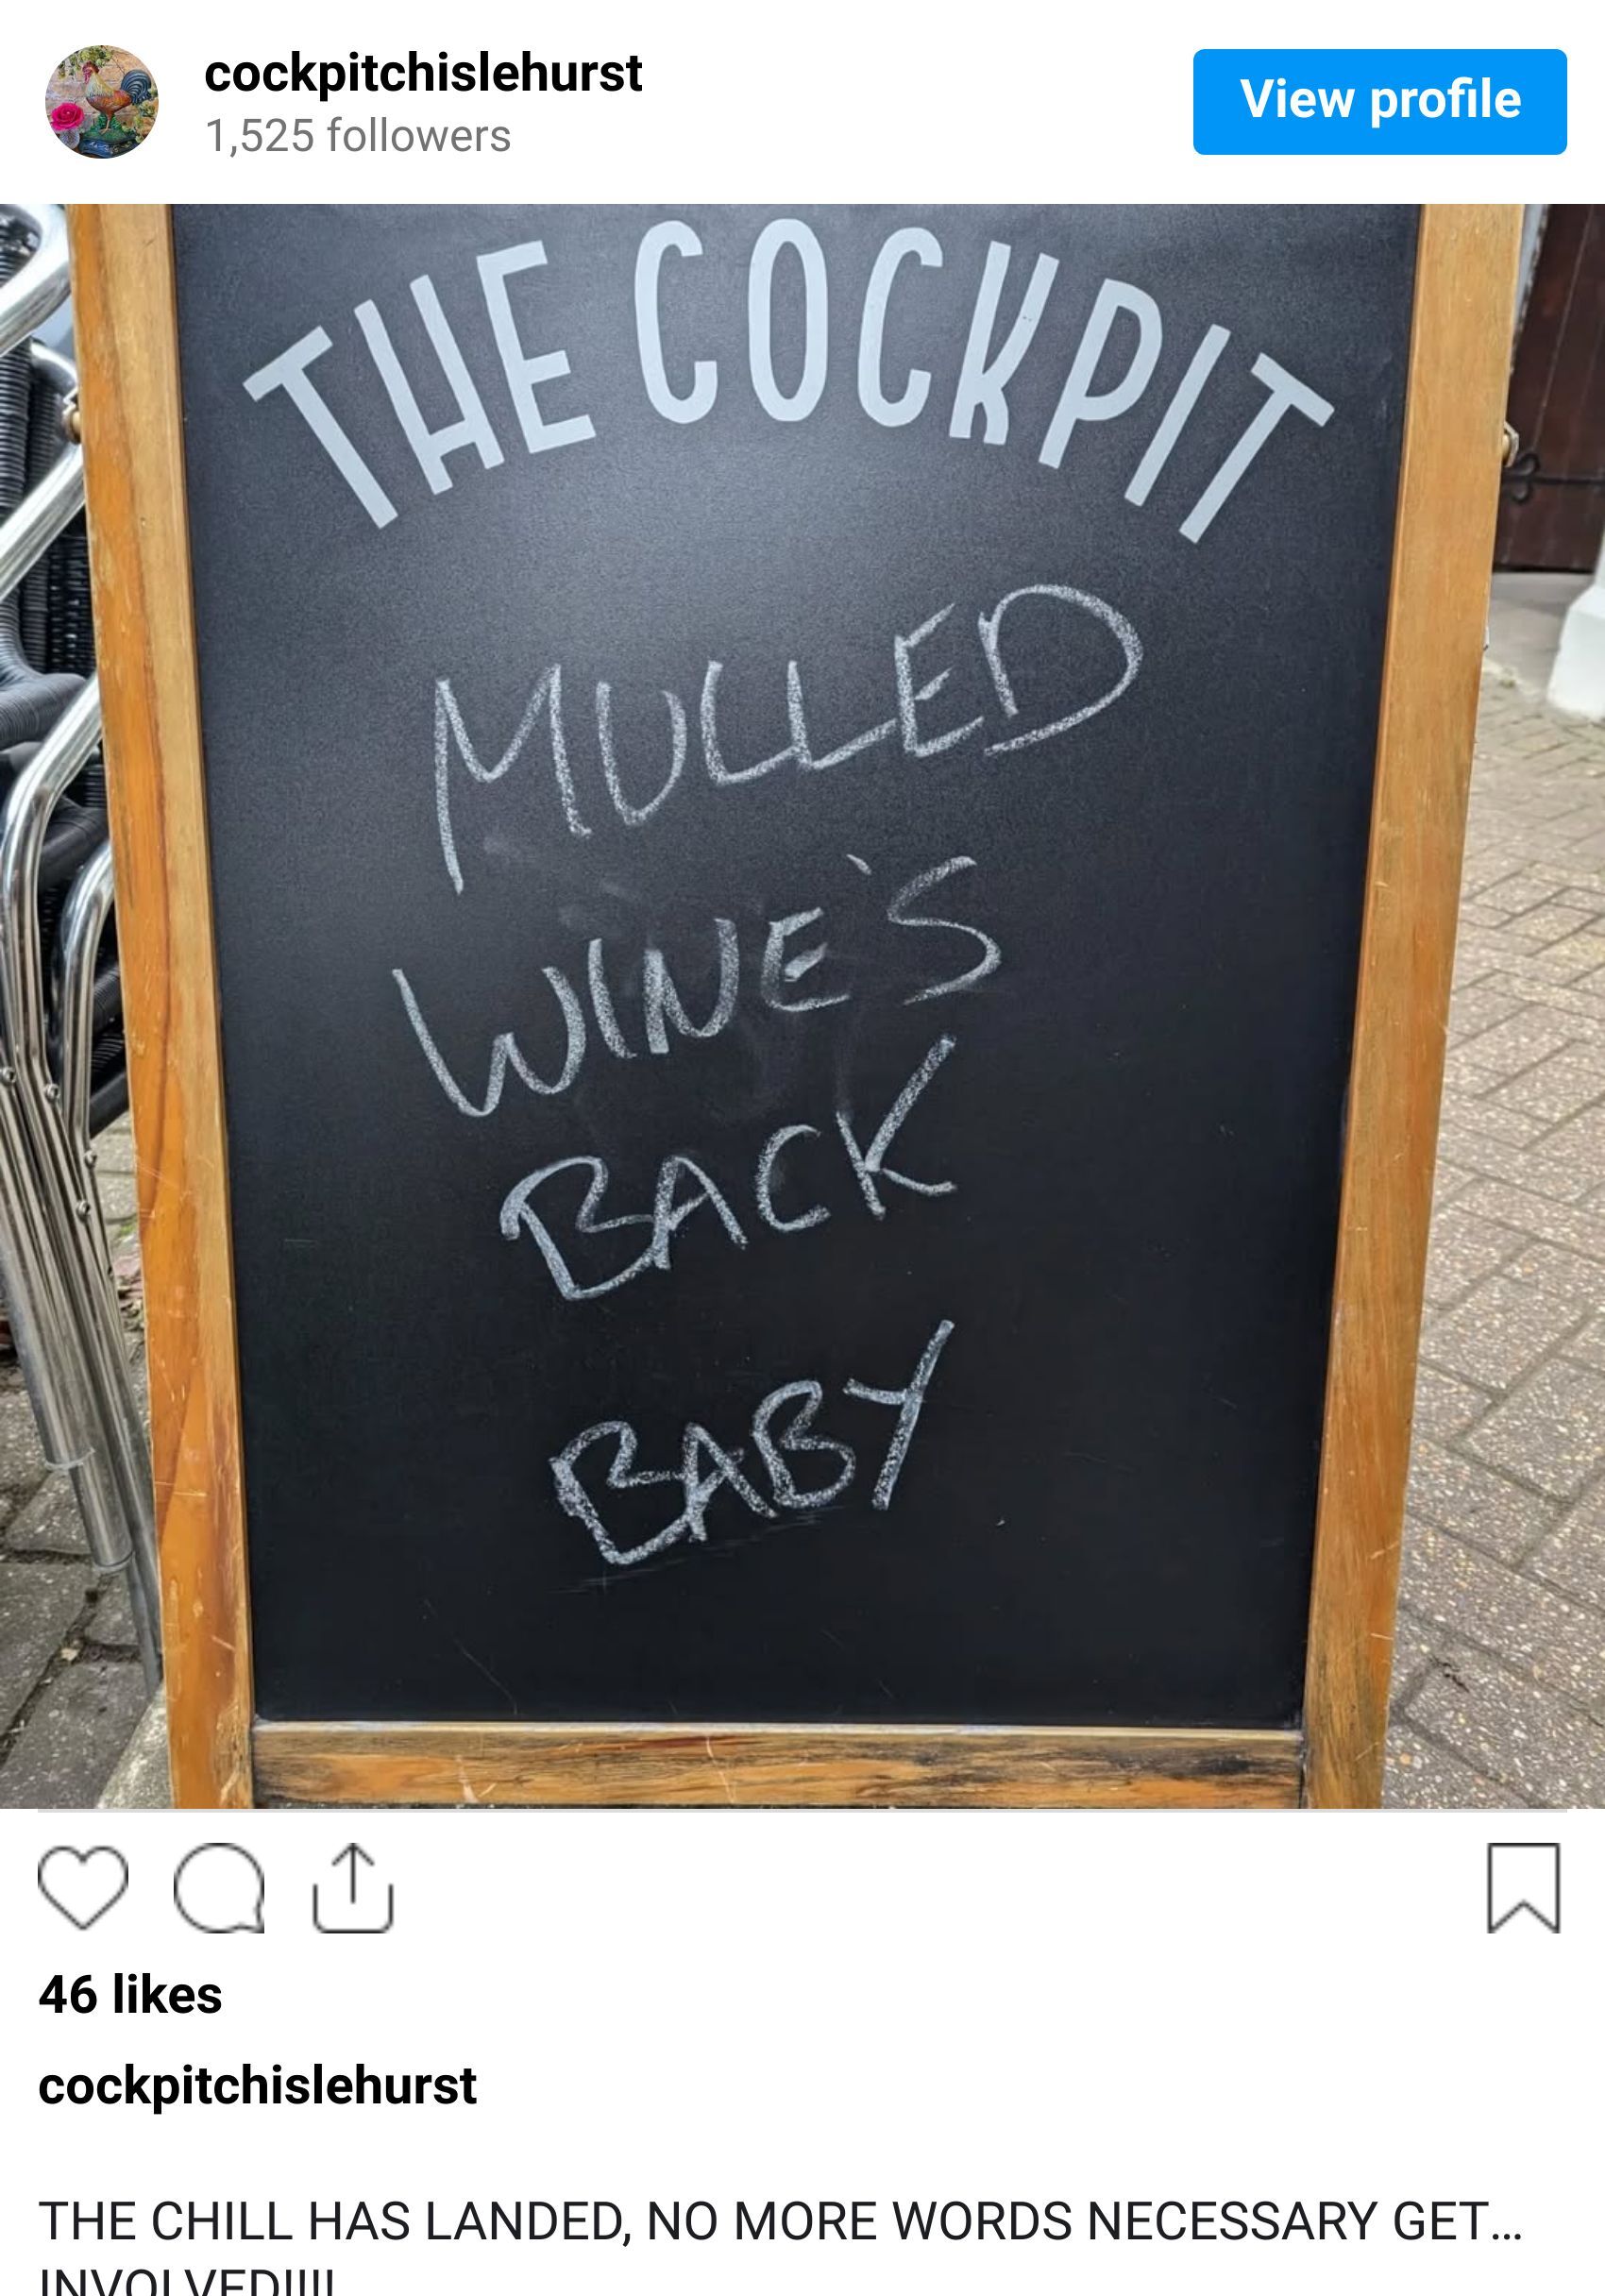 cockpitchislehurst
1,525 followers
View profile
THE COCKPIT
MULLED
WINE'S
BACK
BABY
46 likes
cockpitchislehurst
THE CHILL HAS LANDED, NO MORE WORDS NECESSARY GET...
INVOLVED!!!!